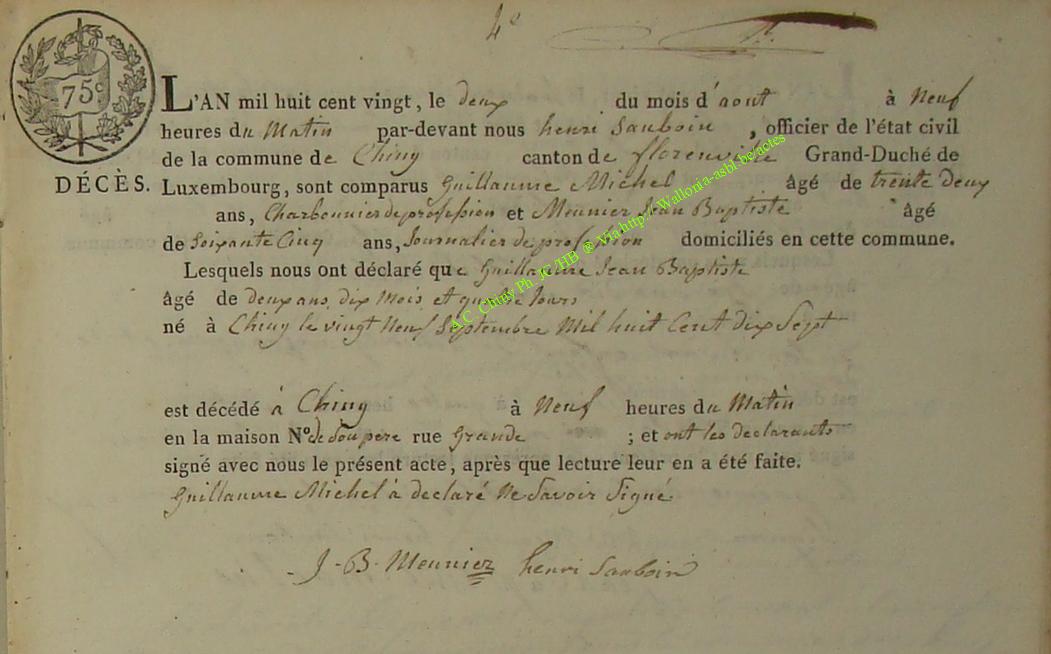 4e
75c
L'AN mil huit cent vingt, le deux du mois d'aout à Neuf
heures du Matin par-devant nous henri Sauboin, officier de l'état civil
de la commune de Chiny canton de florenville Grand-Duché de
DÉCÈS. Luxembourg, sont comparus Guillaume Michel âgé de trente deux
ans, Charbonnier de profession et Meunier Jean Baptiste âgé
de Soixante Cinq ans, Journalier de profession domiciliés en cette commune.
Lesquels nous ont déclaré que Guillaume Jean Baptiste
âgé de deux ans, dix Mois et quatre Jours
né à Chiny le vingt Neuf Septembre Mil huit Cent dix Sept
est décédé à Chiny à Neuf heures du Matin
en la maison No de Son pere rue Grande ; et ont les declarants
signé avec nous le présent acte, après que lecture leur en a été faite.
Guillaume Michel à declaré Ne Savoir Signé
J-B-Meunier henri Sauboin
A.C. Chiny Ph. JC/HB ® Via http:// Wallonia-asbl-be/actes